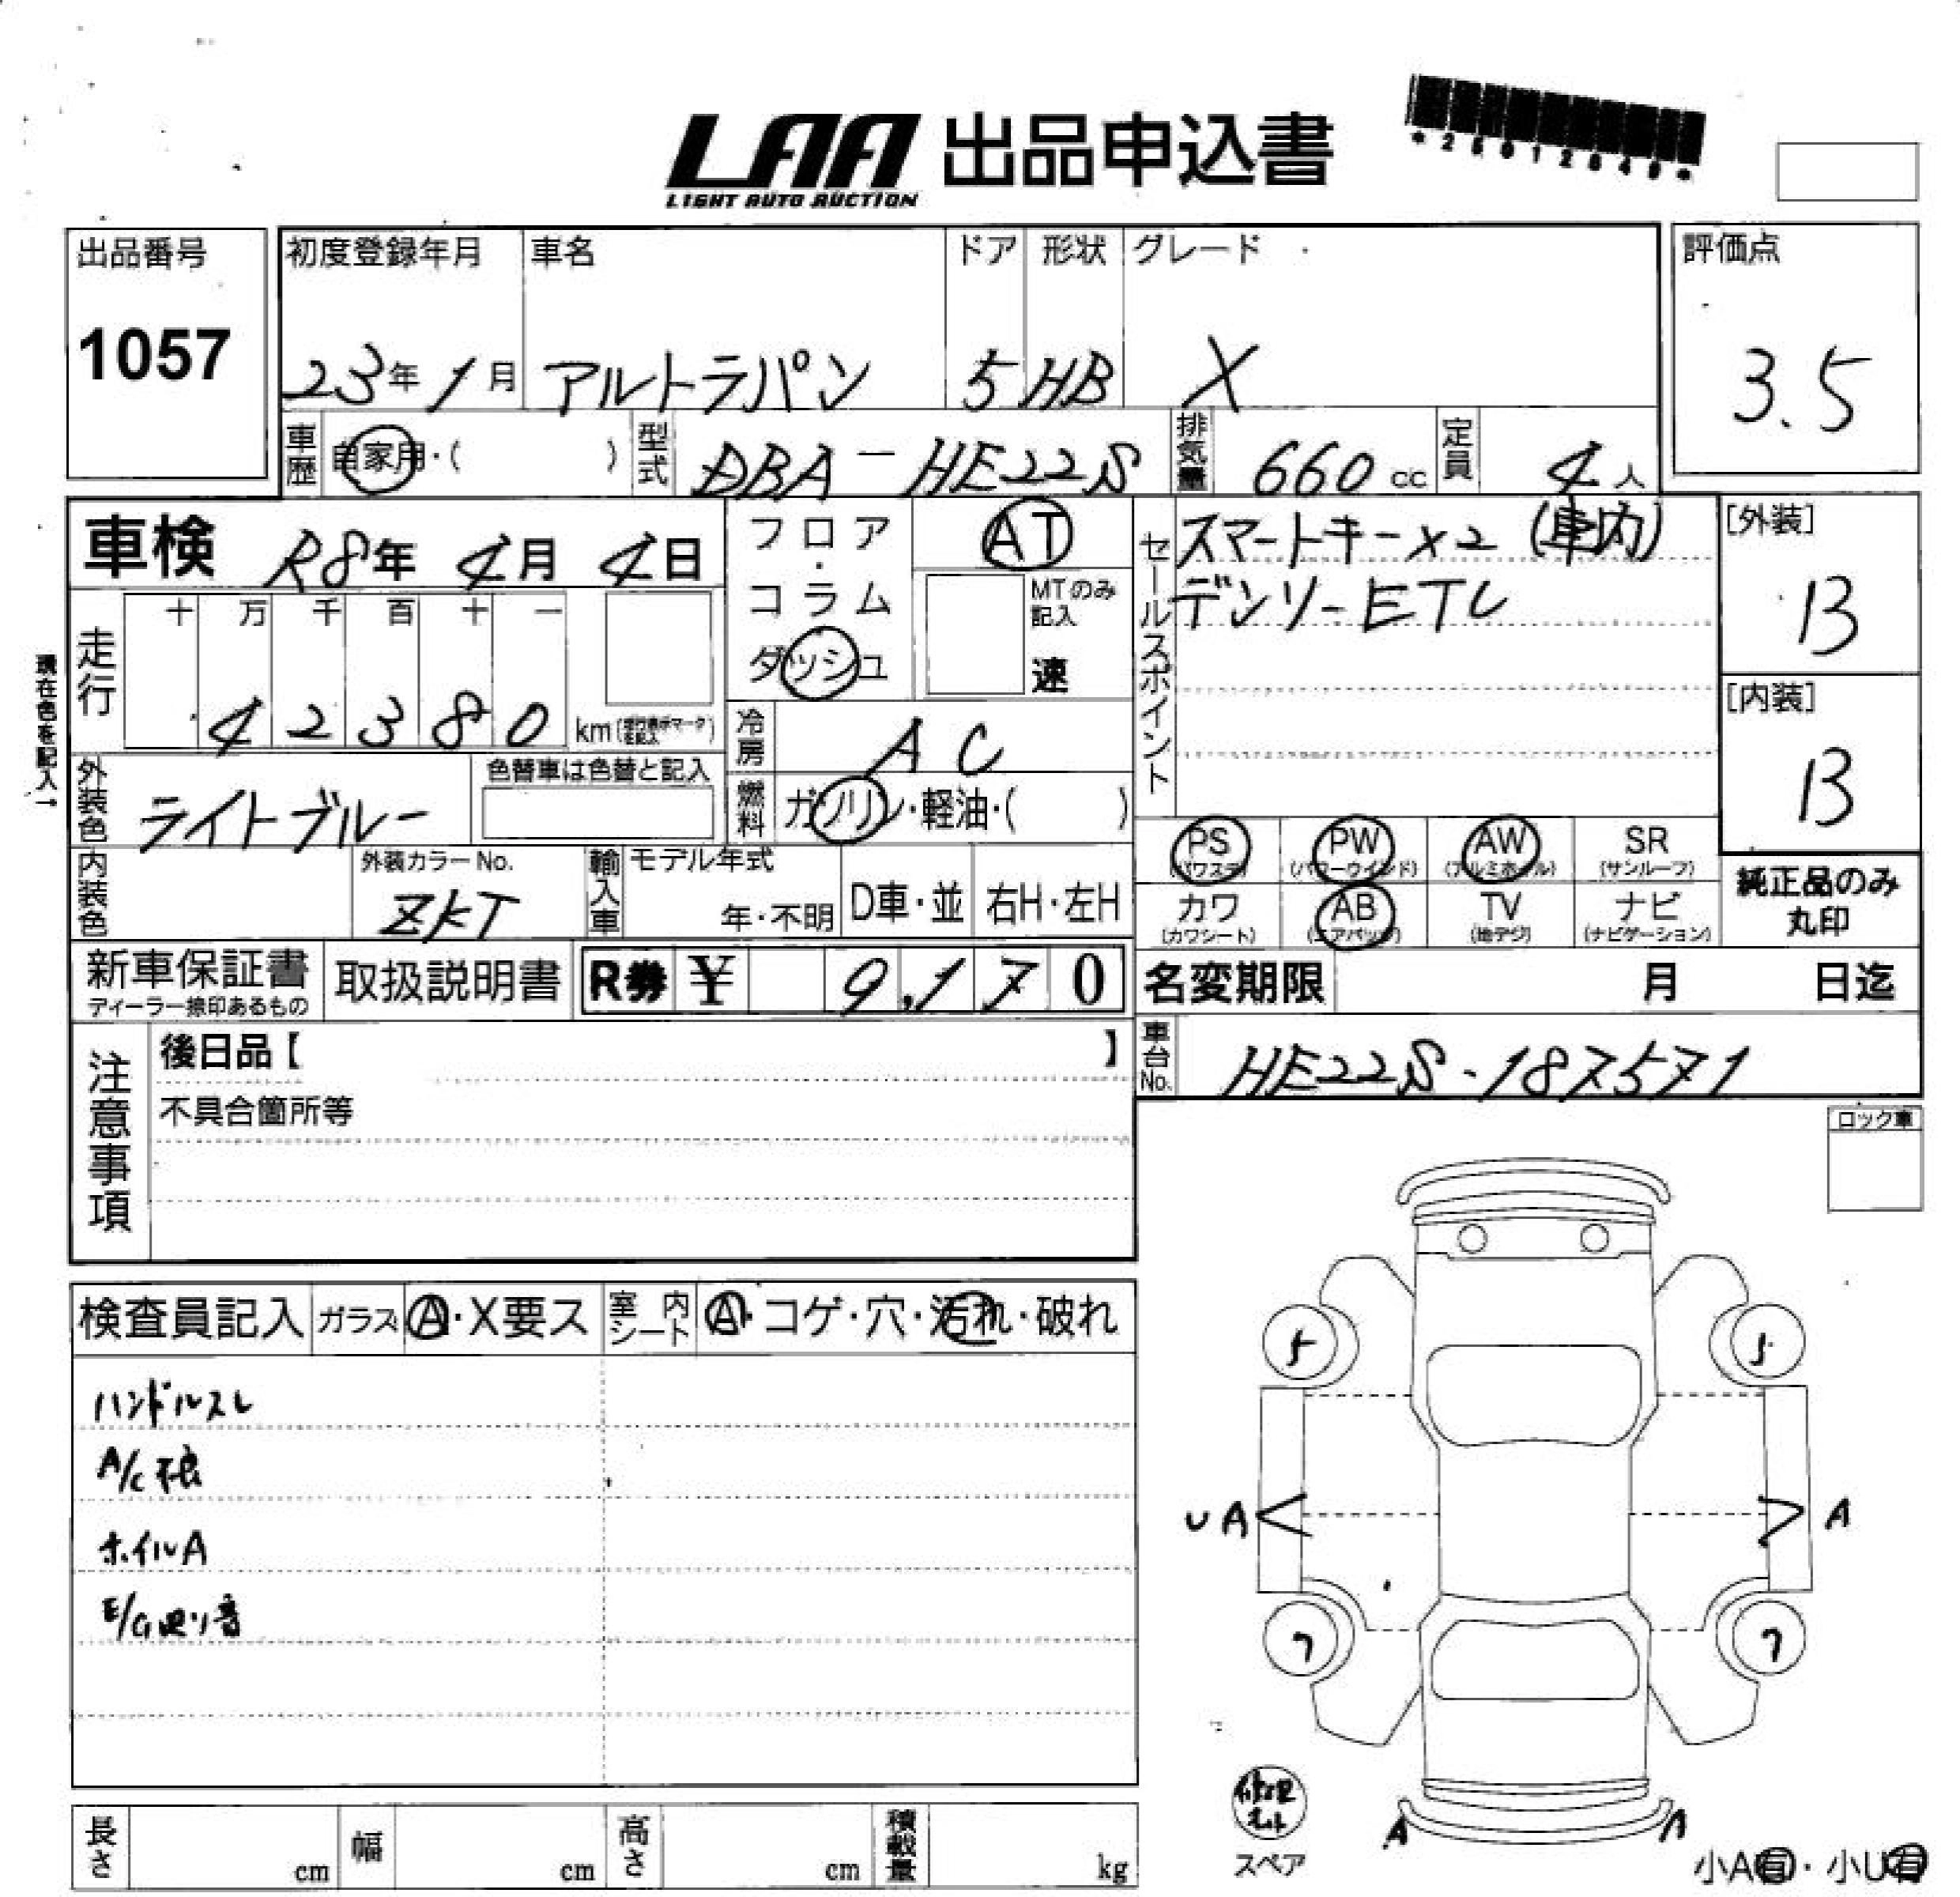 LAA 出品申込書
LIGHT AUTO AUCTION
出品番号 初度登録年月 車名 ドア 形状 グレード 評価点
1057 23年1月 アルトラパン 5 HB X 3.5
車歴 自家用・( ) 型式 DBA-HE22S 排気量 660cc 定員 4人
車検 R8年4月4日
フロア・コラム ダッシュ
AT
MTのみ記入
速
走行 十 万 千 百 十 一
42380 km
現在色を記入→
セールスポイント
スマートキー×2 (車内)
デンソーETC
[外装]
B
[内装]
B
冷房 AC
燃料 ガソリン・軽油・( )
外装色 ライトブルー 色替車は色替と記入
内装色 外装カラーNo. ZKT
輸入車 モデル年式 年・不明 D車・並 右H・左H
PS (パワステ) PW (パワーウインド) AW (アルミホイル) SR (サンルーフ)
カワ (カワシート) AB (エアバッグ) TV (地デジ) ナビ (ナビゲーション)
純正品のみ丸印
新車保証書 ディーラー捺印あるもの 取扱説明書 R券 ¥ 9,170
名変期限 月 日迄
車台No. HE22S-187571
注意事項
後日品【 】
不具合箇所等
ロック車
検査員記入 ガラス A・X要ス 室内シート A・コゲ・穴・汚れ・破れ
ハンドルスレ
A/C不良
ホイルA
E/G廻リ音
5 5
UA A
7 7
A A
修理キット
スペア
小A有・小U有
長さ cm 幅 cm 高さ cm 積載量 kg